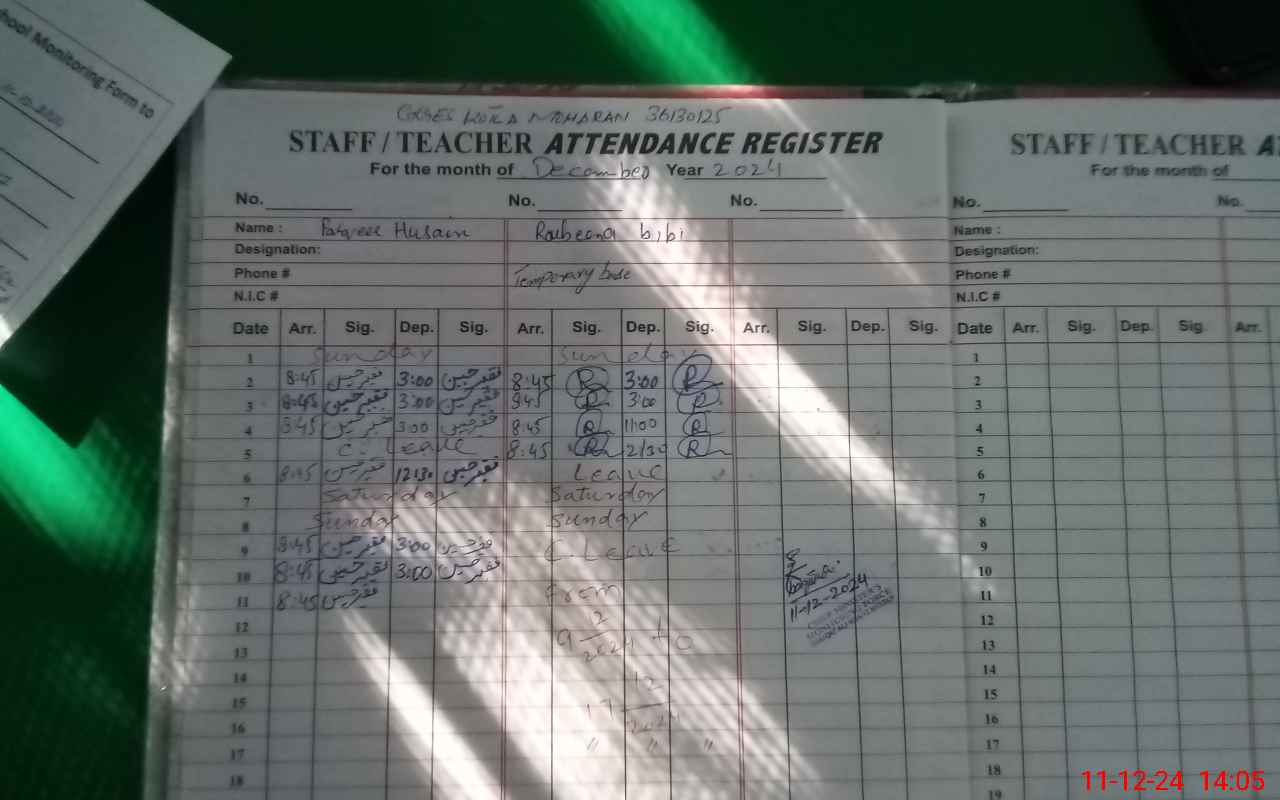 School Monitoring Form to
KOTLA MOHARAN 36130125
STAFF / TEACHER ATTENDANCE REGISTER
For the month of December Year 2024
No. No. No.
Name : Husain Rubeena bibi
Designation:
Phone # Temporary base
N.I.C #
Date Arr. Sig. Dep. Sig. Arr. Sig. Dep. Sig. Arr. Sig. Dep. Sig.
1 Sunday Sunday
2 8:45 فقیر حسین 3:00 فقیر حسین 8:45 R 3:00 R
3 8:45 فقیر حسین 3:00 فقیر حسین 845 R 3:00 R
4 8:45 فقیر حسین 3:00 فقیر حسین 8:45 R 11:00 R
5 C. Leave 8:45 R 2/30 R
6 8:45 فقیر حسین 12:30 فقیر حسین Leave
7 Saturday Saturday
8 Sunday Sunday
9 8:45 فقیر حسین 3:00 فقیر حسین C. Leave
10 8:45 فقیر حسین 3:00 فقیر حسین
11 8:45 فقیر حسین From
11-12-2024
CHIEF MINISTER'S
12 9 12 2024 to
13
14
15 17 12 2024
16
17 " " "
18
STAFF / TEACHER A
For the month of
No. No.
Name :
Designation:
Phone #
N.I.C #
Date Arr. Sig. Dep. Sig. Arr.
1
2
3
4
5
6
7
8
9
10
11
12
13
14
15
16
17
18
19
11-12-24 14:05